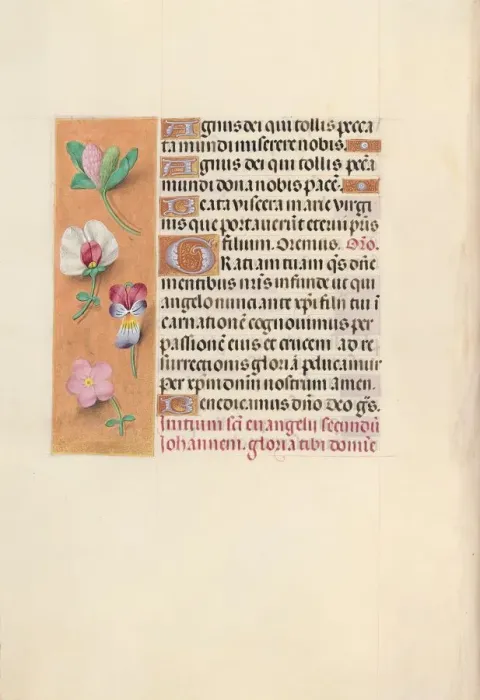 Agnus dei qui tollis pecca
ta mundi miserere nobis.
Agnus dei qui tollis pcc̄a
mundi dona nobis pacē.
Beata viscera marie virgi
nis que portaverūt eterni pr̄is
filium. Oremus. Or̄o.
Gratiam tuam q̄s dn̄e
mentibus nr̄is infunde ut qui
angelo nunciante xp̄i filii tui ī
carnationē cognovimus per
passionē eius et crucem ad re
surrectionis gloriā pducamur
per xp̄m dn̄m nostrum amen.
Benedicamus dn̄o Deo gr̄s.
Initium sc̄i euangelii secundū
Johannem. gloria tibi domīe